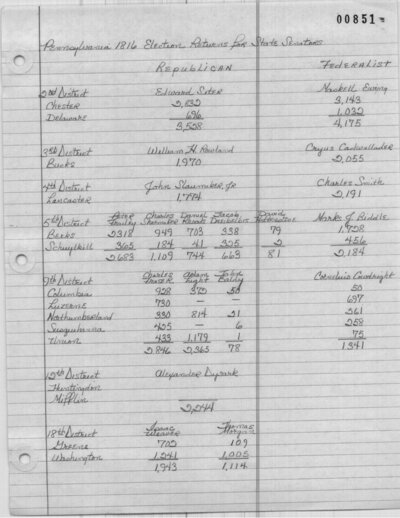 00851
Pennsylvania 1816 Election Returns for State Senators
Republican Federalist
2nd District Edward Siter Maskell Ewing
Chester 2,832 3,143
Delaware 696 1,032
3,528 4,175
3rd District William H. Rowland Cyrus Cadwallader
Bucks 1,970 2,055
4th District John Slaymaker, Jr Charles Smith
Lancaster 1,794 2,191
5th District Peter Charles Daniel Jacob David Marks J. Biddle
Frailey Shoemaker
Berks 2318 949 703 338 79 1,728
Schuylkill 365 184 41 325 2 456
2683 1,109 744 663 81 2,184
9th District Charles Adam John Cornelius Courtright
Fraser Light
Columbia 928 372 50 50
Luzerne 730 — — 697
Northumberland 330 814 21 261
Susquehanna 425 — 6 258
Union 433 1,179 1 75
2,846 2,365 78 1,341
12th District Alexander Dysart
Huntingdon
Mifflin
2,244
18th District Isaac Thomas
Weaver Morgan
Greene 702 109
Washington 1,241 1,005
1,943 1,114